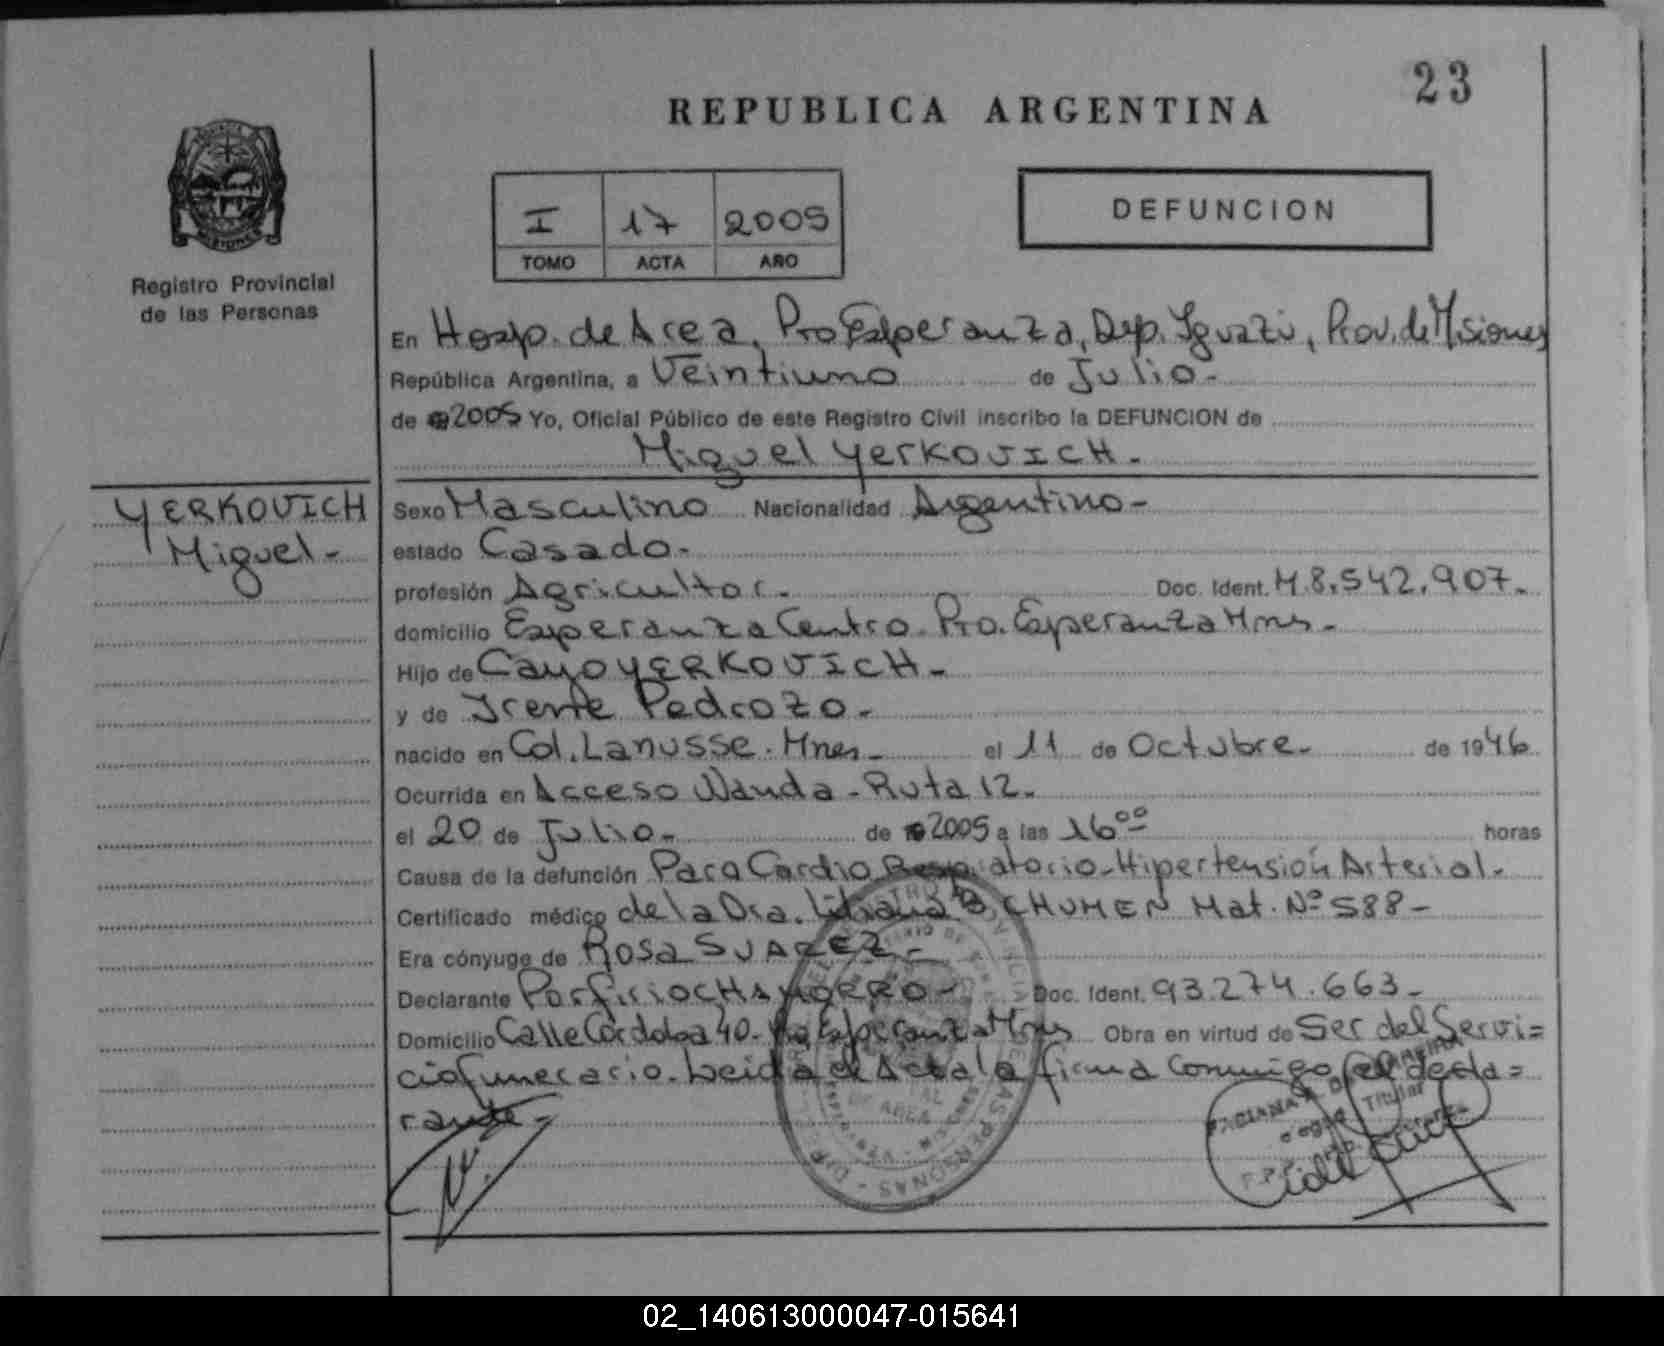 23
REPUBLICA ARGENTINA
I 17 2005
TOMO ACTA AÑO
DEFUNCION
MISIONES
Registro Provincial
de las Personas
En Hosp. de Area, Pto Esperanza, Dep. Iguazú, Prov. de Misiones
República Argentina, a Veintiuno de Julio.-
de 2005 Yo, Oficial Público de este Registro Civil inscribo la DEFUNCION de
Miguel YERKOVICH.-
YERKOVICH
Miguel.-
Sexo Masculino Nacionalidad Argentino-
estado Casado.-
profesión Agricultor.- Doc. Ident. M.8.542.907.-
domicilio Esperanza Centro. Pto. Esperanza Mnes.-
Hijo de Cayo YERKOVICH.-
y de Irene Pedrozo.-
nacido en Col. Lanusse. Mnes.- el 11 de Octubre.- de 1946
Ocurrida en Acceso Wanda - Ruta 12.-
el 20 de Julio.- de 2005 a las 16°° horas
Causa de la defunción Paro Cardio Respiratorio-Hipertensión Arterial.-
Certificado médico de la Dra. Liliana SCHUMEN Mat. Nº 588-
Era cónyuge de Rosa SUAREZ.-
Declarante Porfirio CHAMORRO- Doc. Ident. 93.274.663.-
Domicilio Calle Córdoba 40. Pto Esperanza Mnes Obra en virtud de Ser del Servi=
cio funerario. Leida el Acta la firma conmigo el decla=
rante-
02_140613000047-015641